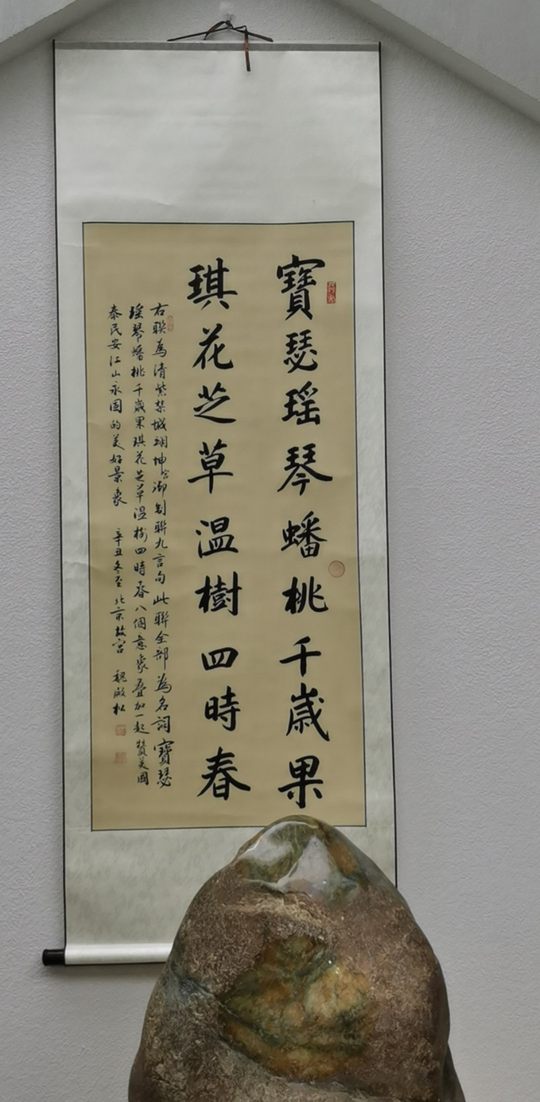 寶瑟瑶琴蟠桃千歲果
琪花芝草温樹四時春
右聯為清紫禁城翊坤宫御制聯九言句此聯全部為名詞寶瑟
瑶琴蟠桃千歲果琪花芝草温樹四時春八個意象叠加一起贊美國
泰民安江山永固的美好景象 辛丑冬至北京故宫 魏啟松